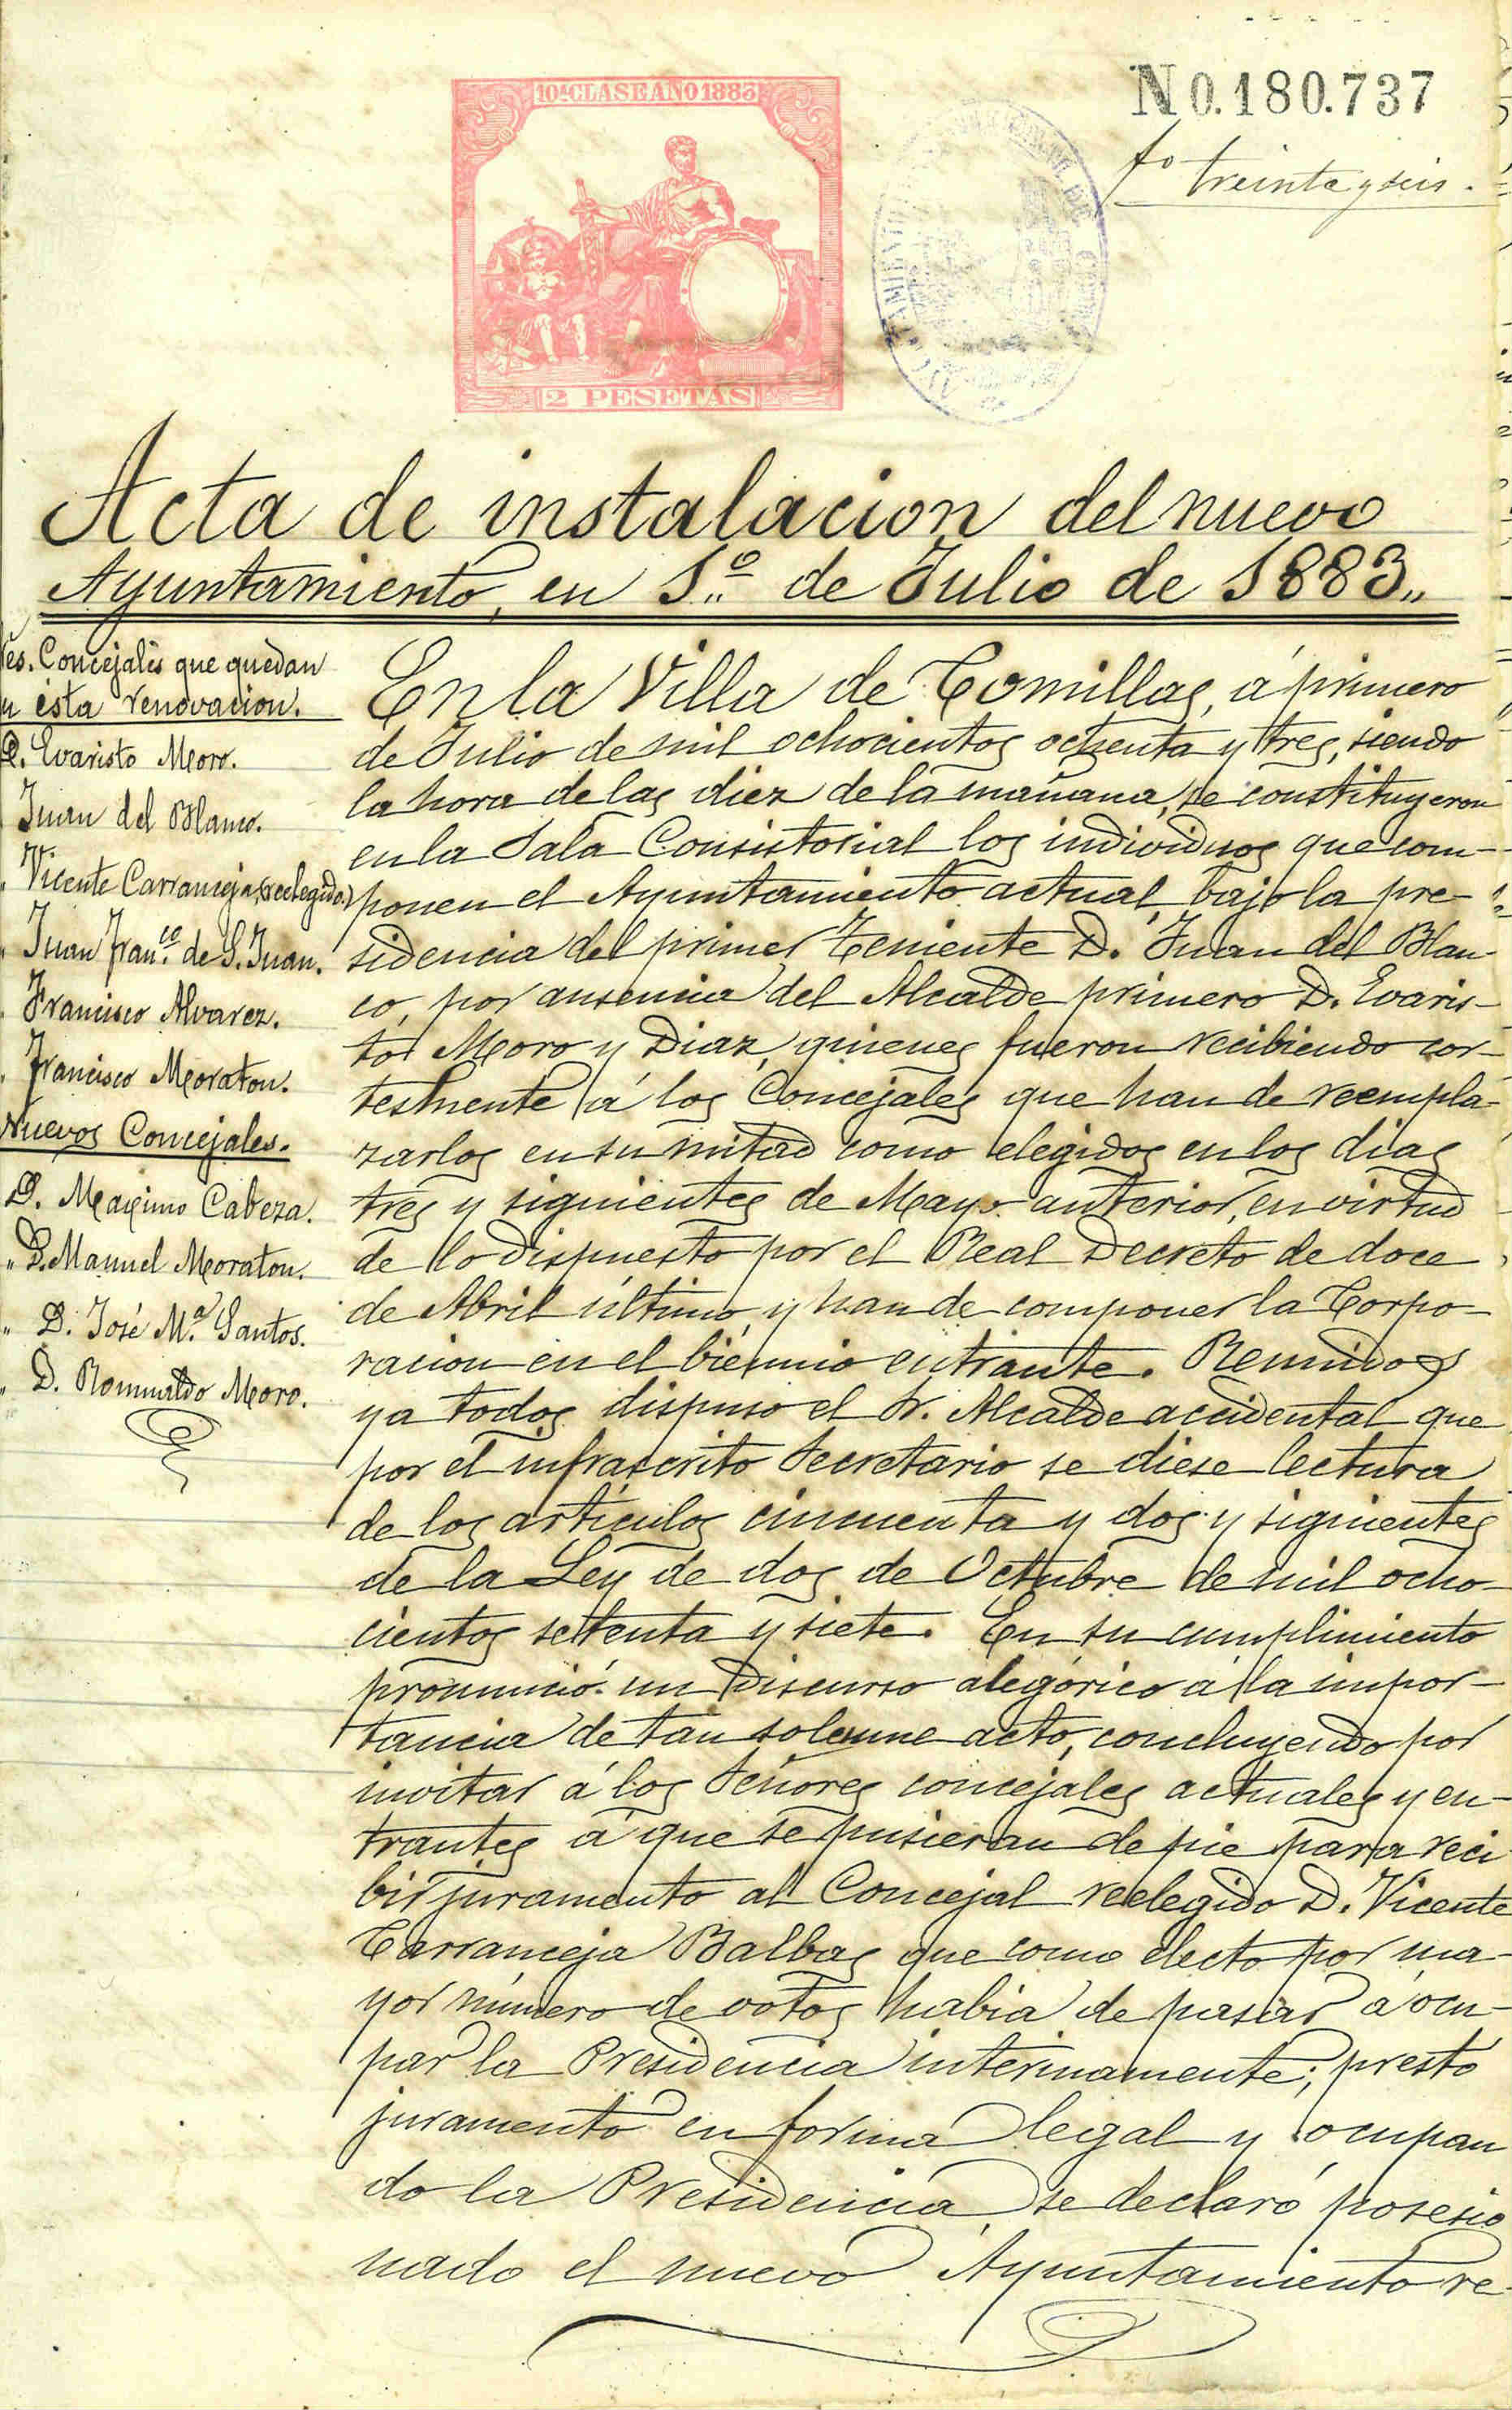 10ª CLASE AÑO 1883
2 PESETAS
N 0.180.737
fº treinta y seis.
Acta de instalacion del nuevo
Ayuntamiento, en 1.º de Julio de 1883.,
Concejales que quedan
esta renovacion.
D. Evaristo Moro.
Juan del Blanco.
" Vicente Carranceja, (reelegido.)
" Juan Fran.co de S. Juan.
" Francisco Alvarez.
" Francisco Moraton.
Nuevos Concejales.
D. Maximo Cabeza.
" D. Manuel Moraton.
" D. José M.ª Santos.
" D. Romualdo Moro.
En la Villa de Comillas, á primero
de Julio de mil ochocientos ochenta y tres, siendo
la hora de las diez de la mañana, se constituyeron
en la Sala Consistorial los individuos que com-
ponen el Ayuntamiento actual, bajo la pre-
sidencia del primer Teniente D. Juan del Blan-
co, por ausencia del Alcalde primero D. Evaris-
to Moro y Diaz, quienes fueron recibiendo cor-
tesmente á los Concejales que han de reempla-
zarlos en su mitad como elegidos en los dias
tres y siguientes de Mayo anterior, en virtud
de lo dispuesto por el Real Decreto de doce
de Abril último, y han de componer la Corpo-
racion en el biennio entrante. Reunidos
ya todos dispuso el Sr. Alcalde accidental que
por el infrascrito Secretario se diese lectura
de los artículos cincuenta y dos y siguientes
de la Ley de dos de Octubre de mil ocho-
cientos setenta y siete. En su cumplimiento
pronunció un Discurso alegórico á la impor-
tancia de tan solemne acto, concluyendo por
invitar á los Señores concejales actuales y en-
trantes á que se pusieran de pie para reci
bir juramento al Concejal reelegido D. Vicente
Carranceja Balbas que como electo por ma-
yor número de votos habia de pasar á ocu-
par la Presidencia interinamente; prestó
juramento en forma legal y ocupan
do la Presidencia, se declaró posesio
nado el nuevo Ayuntamiento re-